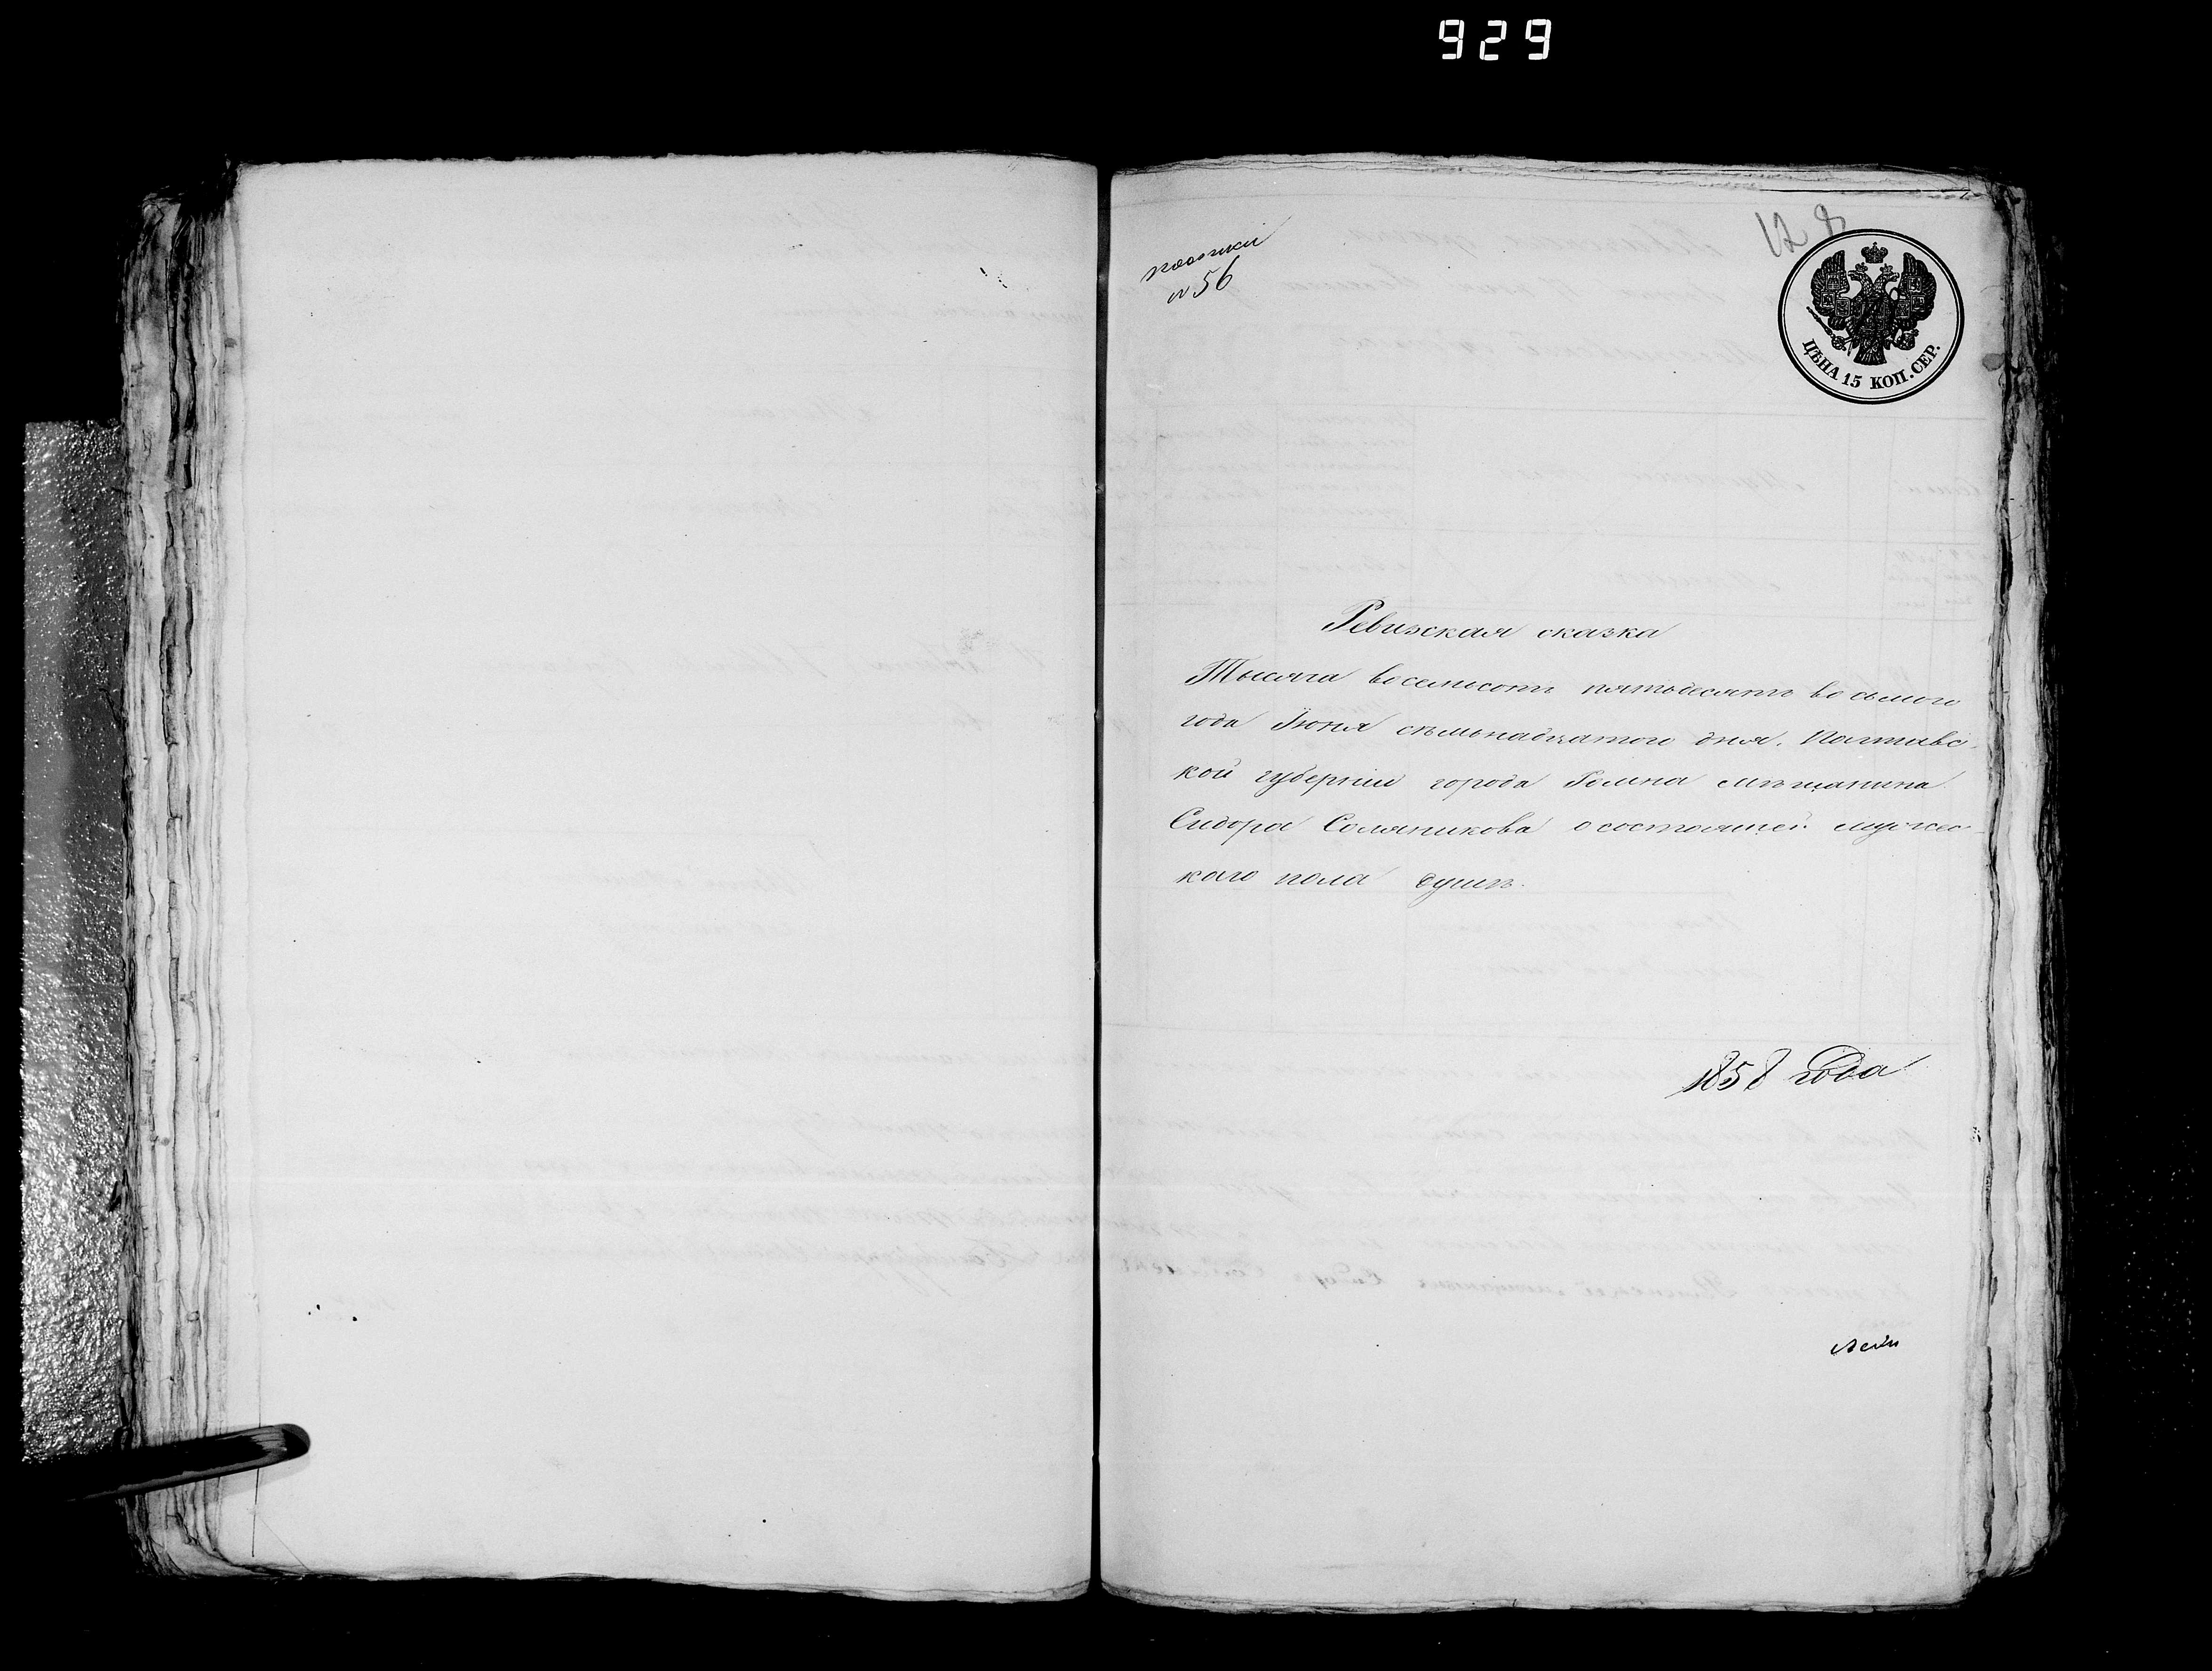 929
№ 56
ЦѢНА 15 КОП. СЕР.
Ревизская сказка
Тысяча восемьсотъ пятьдесятъ восьмого
года Іюня семьнадцатого дня. Полтавс-
кой губерніи города Ромна мѣщанина
Сидора Соляникова о состоящей мужес-
каго пола душѣ.
1858 года